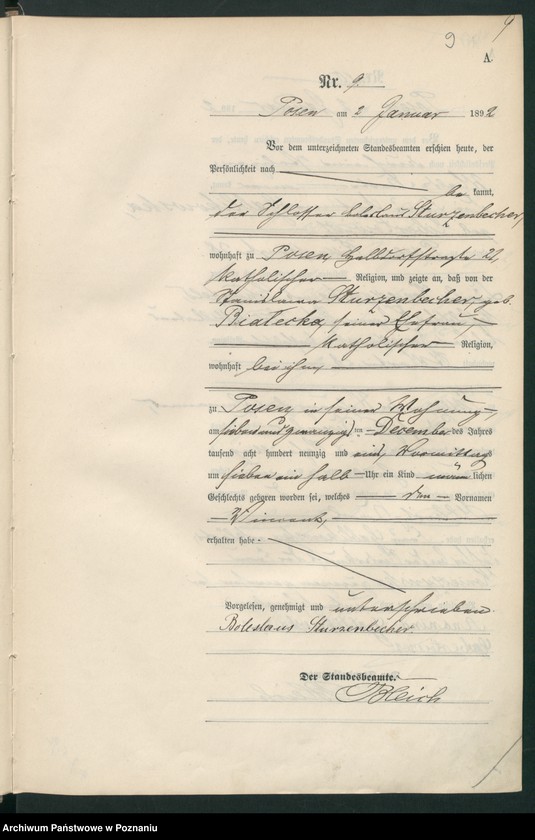 9
A
Nr. 9.
Posen am 2 Januar 1892
Vor dem unterzeichneten Standesbeamten erschien heute, der
Persönlichkeit nach
be kannt,
der Schlosser Boleslaus Sturzenbecher,
wohnhaft zu Posen, Halbdorfstraße 21,
katholischer Religion, und zeigte an, daß von der
Stanislawa Sturzenbecher, geb.
Białecka, seiner Ehefrau,
katholischer Religion,
wohnhaft bei ihm
zu Posen in seiner Wohnung,
am siebenundzwanzigsten December des Jahres
tausend acht hundert neunzig und eins, Vormittags
um sieben ein halb Uhr ein Kind männlichen
Geschlechts geboren worden sei, welches den Vornamen
Vincent,
erhalten habe.
Vorgelesen, genehmigt und unterschrieben.
Boleslaus Sturzenbecher.
Der Standesbeamte.
Bleich
Archiwum Państwowe w Poznaniu